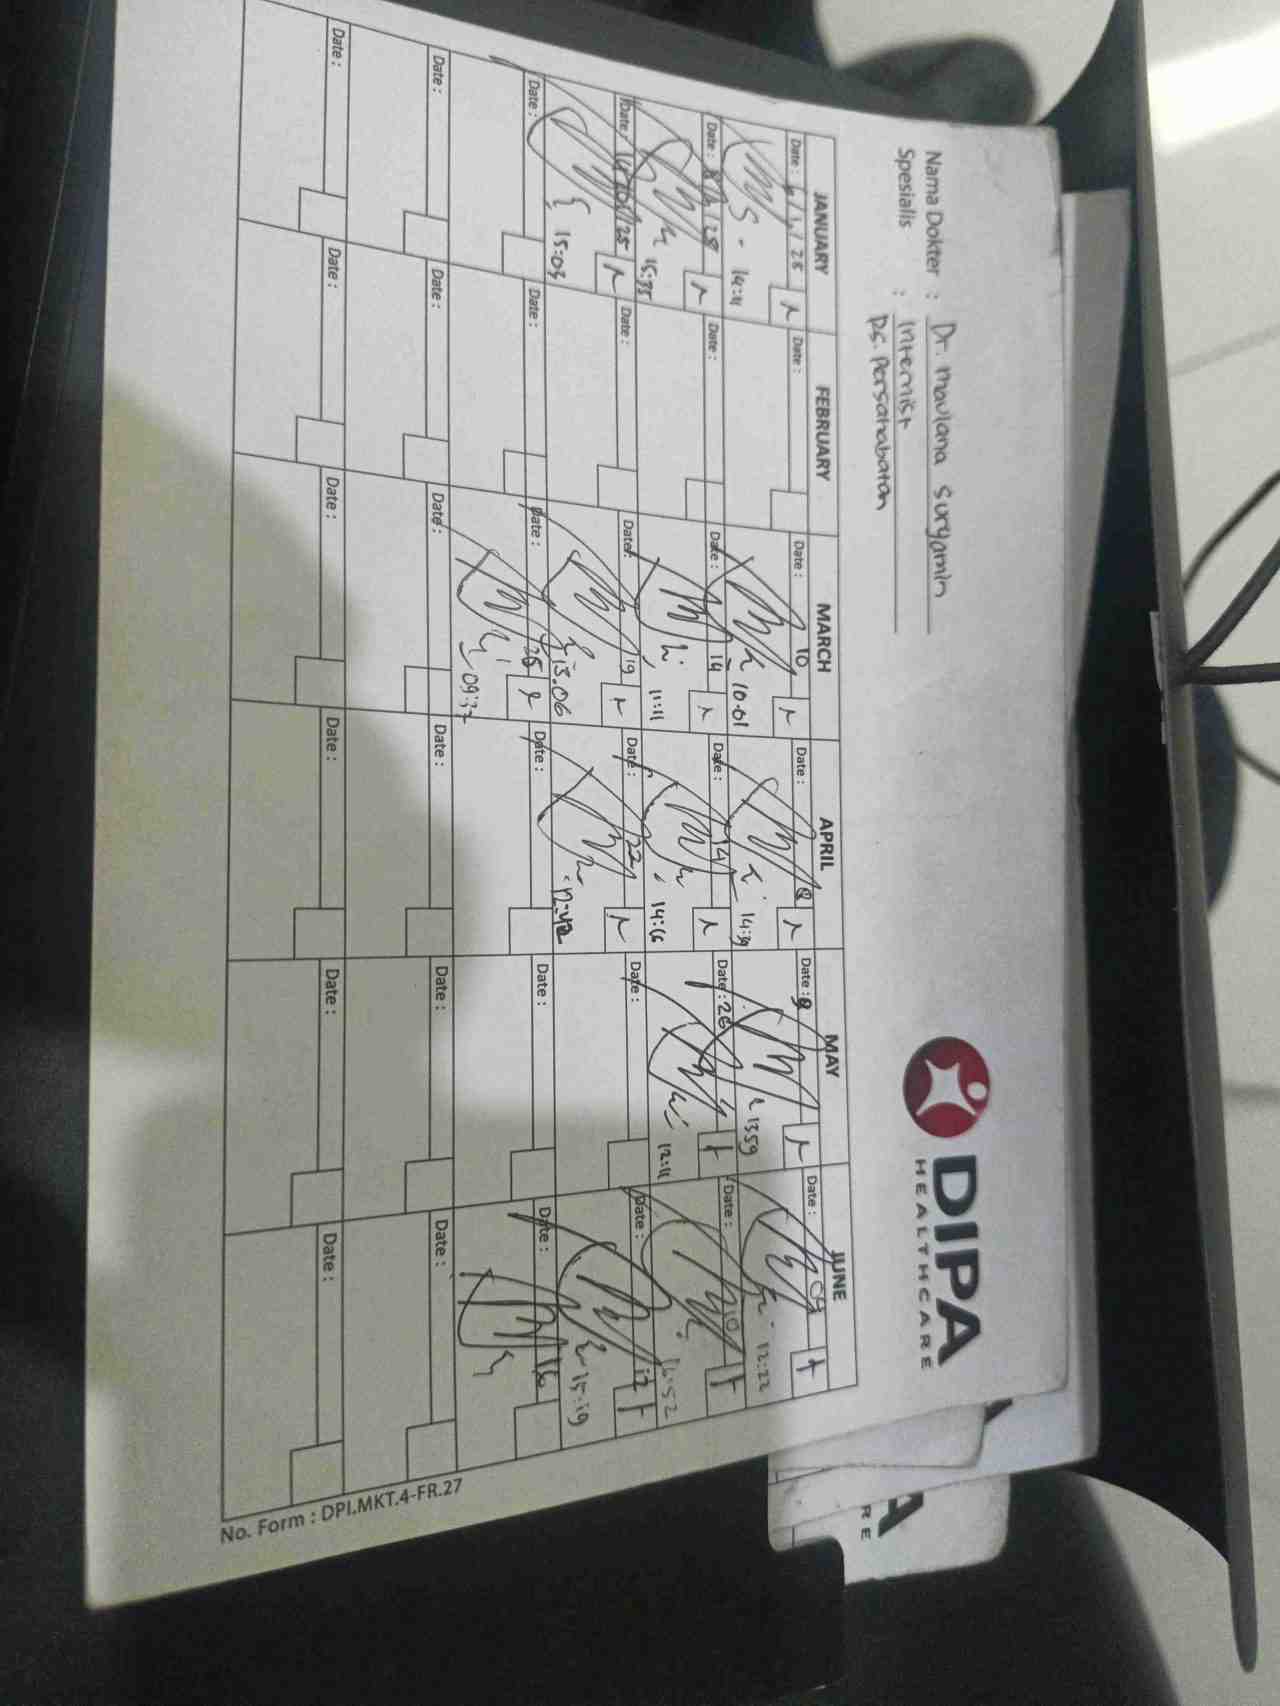 Nama Dokter : Dr. Maulana Suryamin
Spesialis : Internist
RS. Persahabatan
DIPA
HEALTHCARE
JANUARY FEBRUARY MARCH APRIL MAY JUNE
Date : Date : Date : 10 Date : 8 Date : 9 Date : 04
14:11 10.01 14:39 1359 12:22
Date : Date : Date : 14 Date : 14 Date : 26 Date : 10
15:35 11:11 14:16 12:11 16:52
Date : Date : Date : 19 Date : 22 Date : Date : 12
15:03 13.06 15:19
Date : Date : Date : 25 Date : Date : Date : 16
09:32
Date : Date : Date : Date : Date : Date :
Date : Date : Date : Date : Date : Date :
No. Form : DPI.MKT.4-FR.27